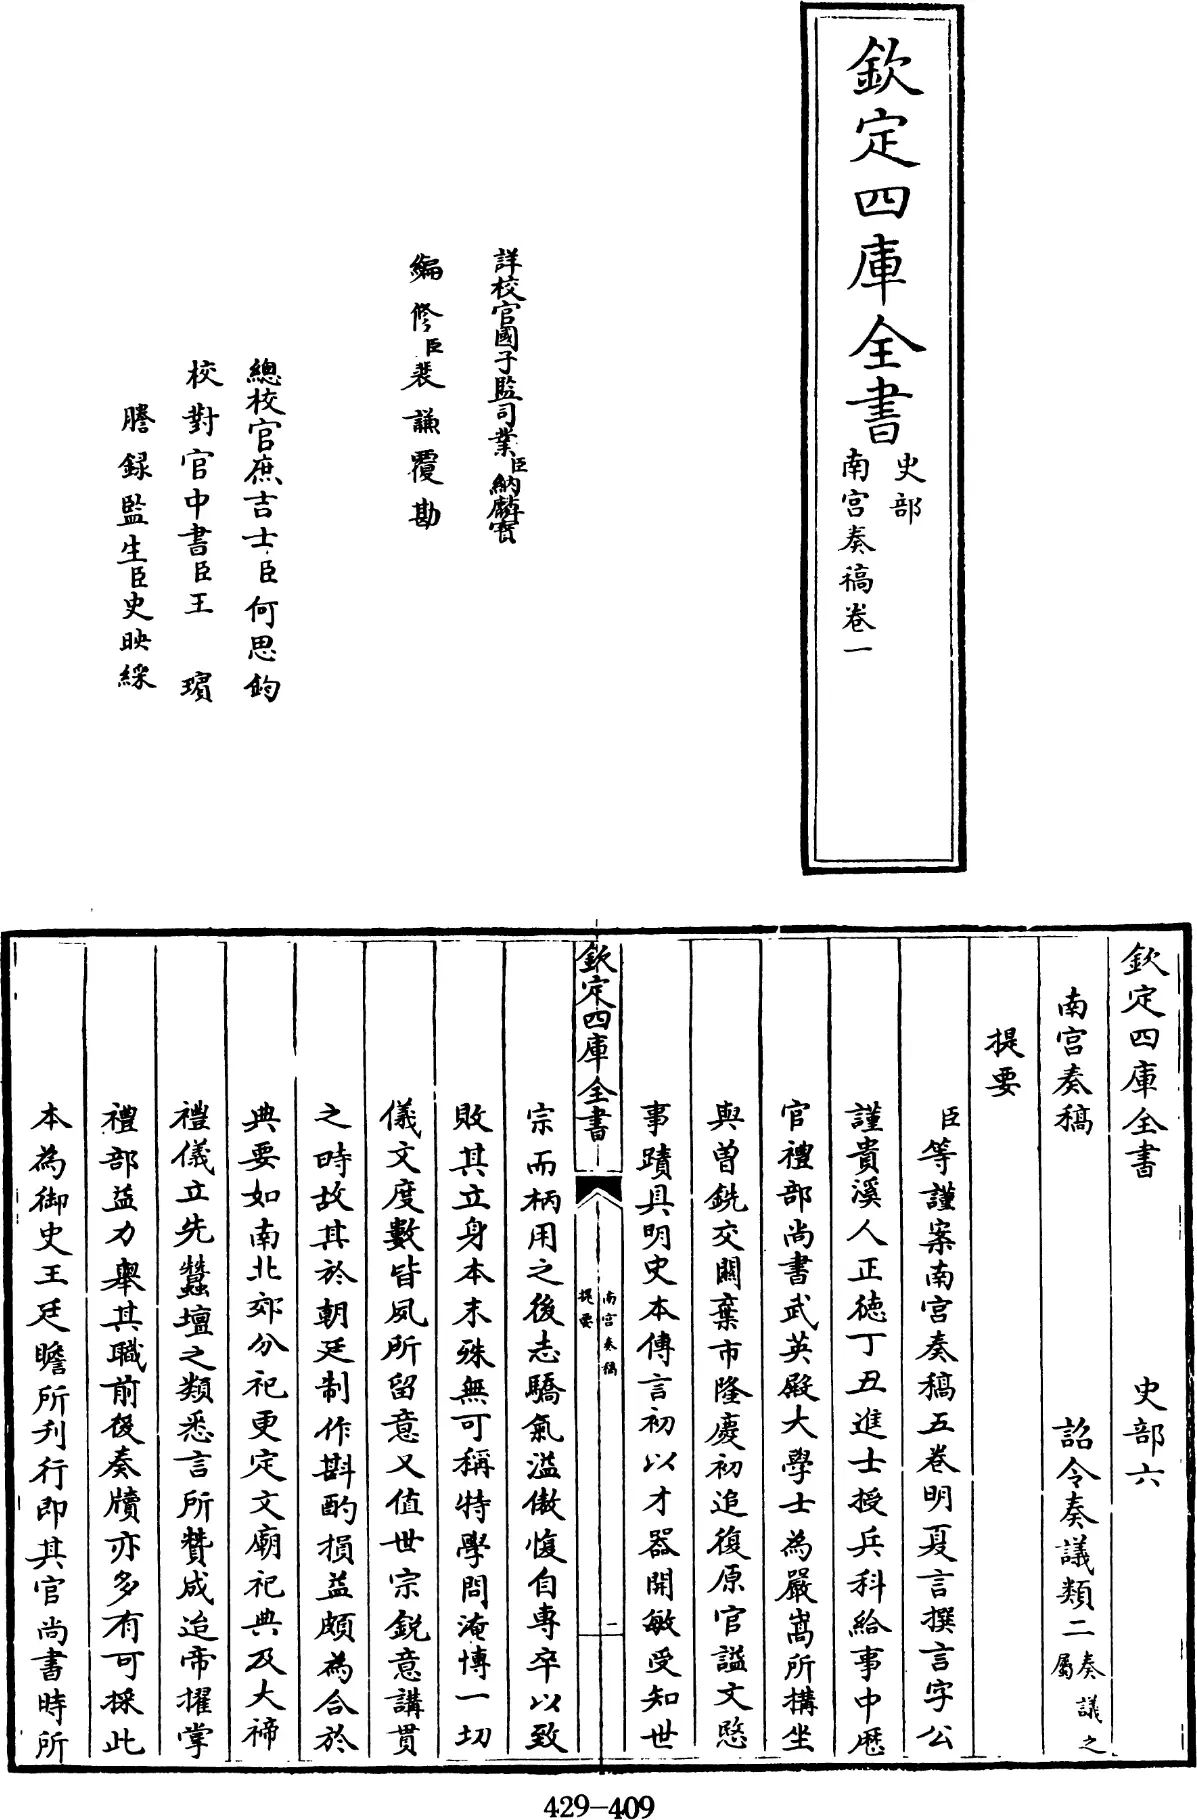 欽定四庫全書
史部
南宫奏稿卷一
詳校官國子監司業臣納麟寶
編修臣裴謙覆勘
總校官庶吉士臣何思鈞
校對官中書臣王瑸
謄録監生臣史映綵
欽定四庫全書 史部六
南宫奏稿 詔令奏議類二奏議之屬
提要
臣等謹案南宫奏稿五卷明夏言撰言字公
謹貴溪人正徳丁丑進士授兵科給事中歴
官禮部尚書武英殿大學士為嚴嵩所構坐
與曽銑交闗棄市隆慶初追復原官謚文愍
事蹟具明史本傳言初以才器開敏受知世
欽定四庫全書
南宫奏稿
提要
一
宗而柄用之後志驕氣溢傲愎自専卒以致
敗其立身本末殊無可稱特學問淹博一切
儀文度數皆夙所留意又值世宗鋭意講貫
之時故其於朝廷制作斟酌損益頗為合於
典要如南北郊分祀更定文廟祀典及大禘
禮儀立先蠶壇之類悉言所贊成迨帝擢掌
禮部益力舉其職前後奏牘亦多有可採此
本為御史王廷瞻所刋行即其官尚書時所
429-409